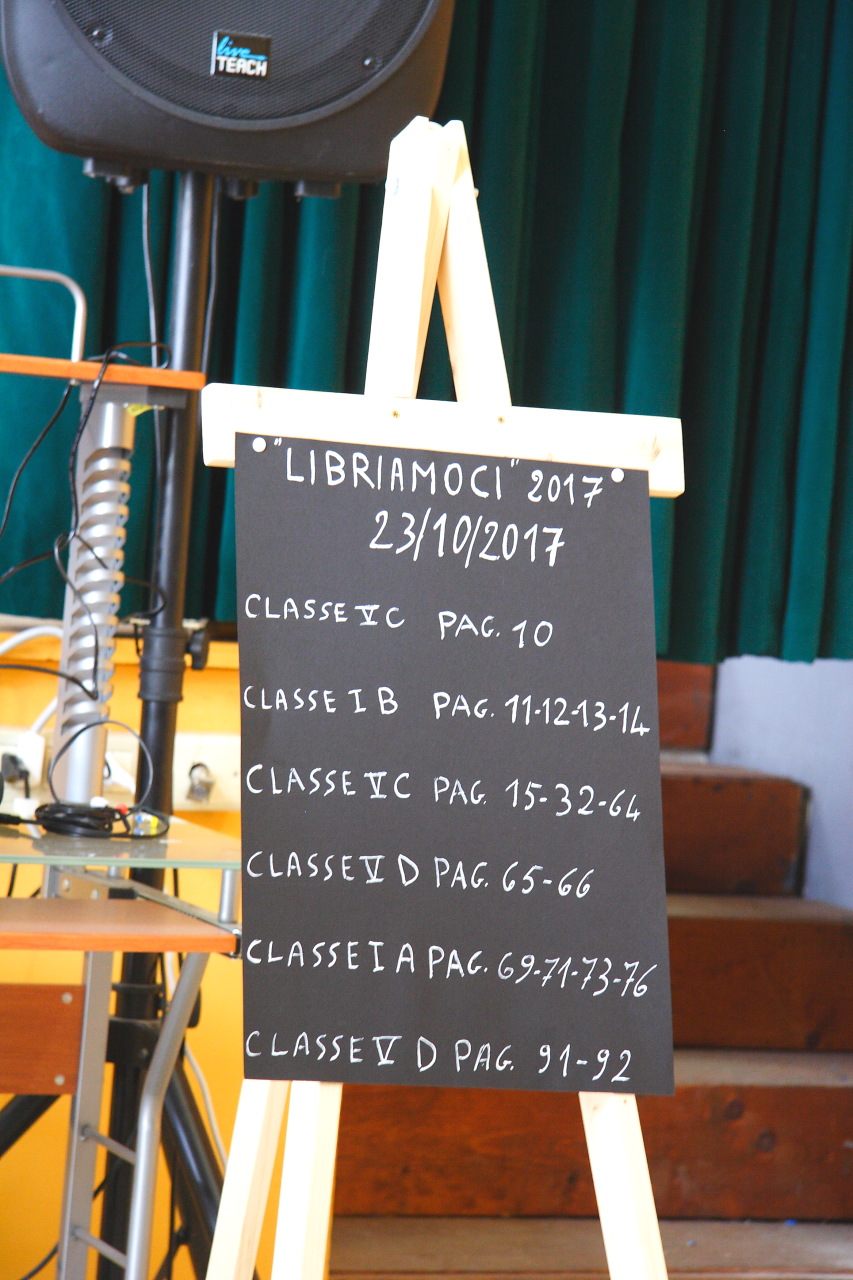 live
TEACH
"LIBRIAMOCI" 2017
23/10/2017
CLASSE V C PAG. 10
CLASSE I B PAG. 11-12-13-14
CLASSE V C PAG. 15-32-64
CLASSE V D PAG. 65-66
CLASSE I A PAG. 69-71-73-76
CLASSE V D PAG. 91-92